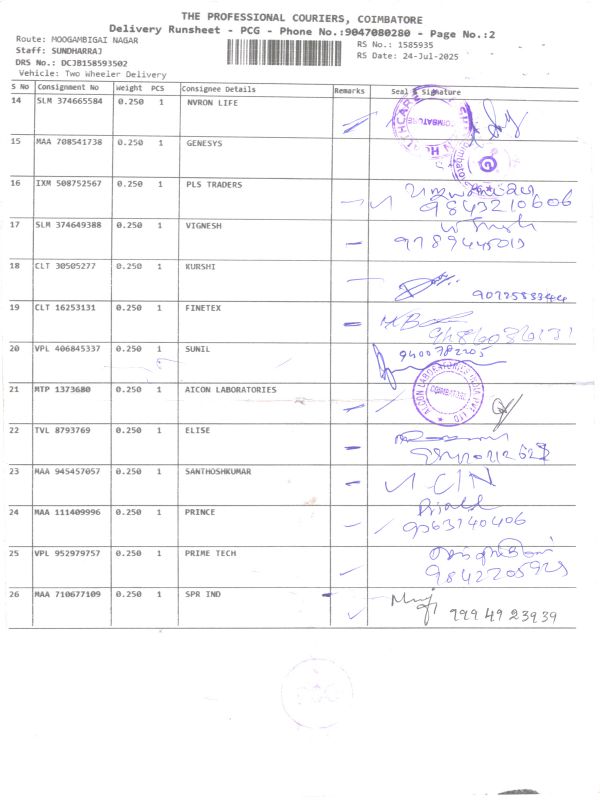 THE PROFESSIONAL COURIERS, COIMBATORE
Delivery Runsheet - PCG - Phone No.:9047080280 - Page No.:2
Route: MOOGAMBIGAI NAGAR
RS No.: 1585935
Staff: SUNDHARRAJ
RS Date: 24-Jul-2025
DRS No.: DCJB158593502
Vehicle: Two Wheeler Delivery
S No Consignment No Weight PCS Consignee Details Remarks Seal & Signature
14 SLM 374665584 0.250 1 NVRON LIFE
COIMBATORE
15 MAA 708541738 0.250 1 GENESYS
16 IXM 508752567 0.250 1 PLS TRADERS
9843210606
17 SLM 374649388 0.250 1 VIGNESH
9789445013
18 CLT 30505277 0.250 1 KURSHI
19 CLT 16253131 0.250 1 FINETEX
20 VPL 406845337 0.250 1 SUNIL
9400782205
21 MTP 1373680 0.250 1 AICON LABORATORIES
22 TVL 8793769 0.250 1 ELISE
23 MAA 945457057 0.250 1 SANTHOSHKUMAR
24 MAA 111409996 0.250 1 PRINCE
9363140406
25 VPL 952979757 0.250 1 PRIME TECH
9842205929
26 MAA 710677109 0.250 1 SPR IND
9994923939